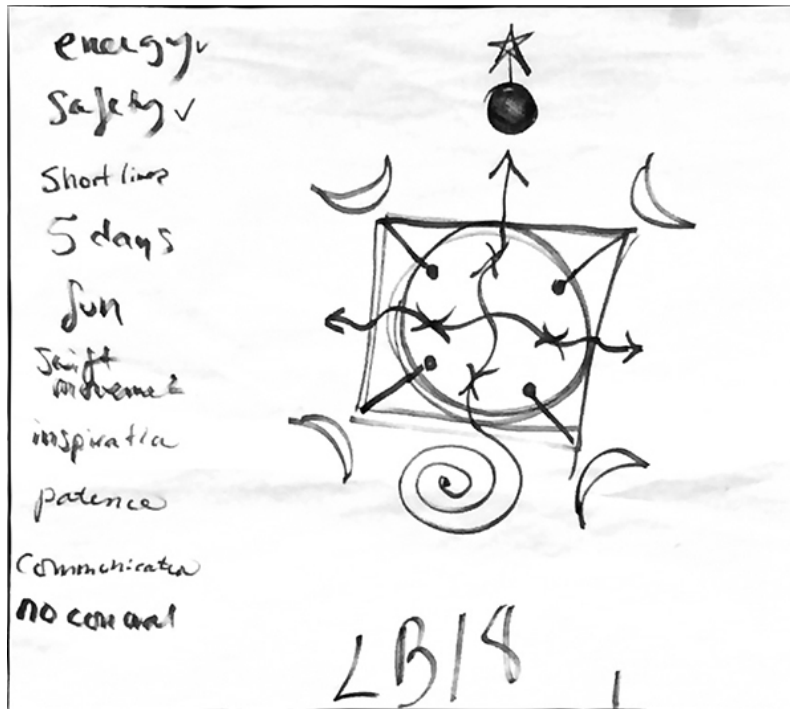 energy
safety
short lines
5 days
fun
swift
movement
inspiration
patence
communication
no
LB18